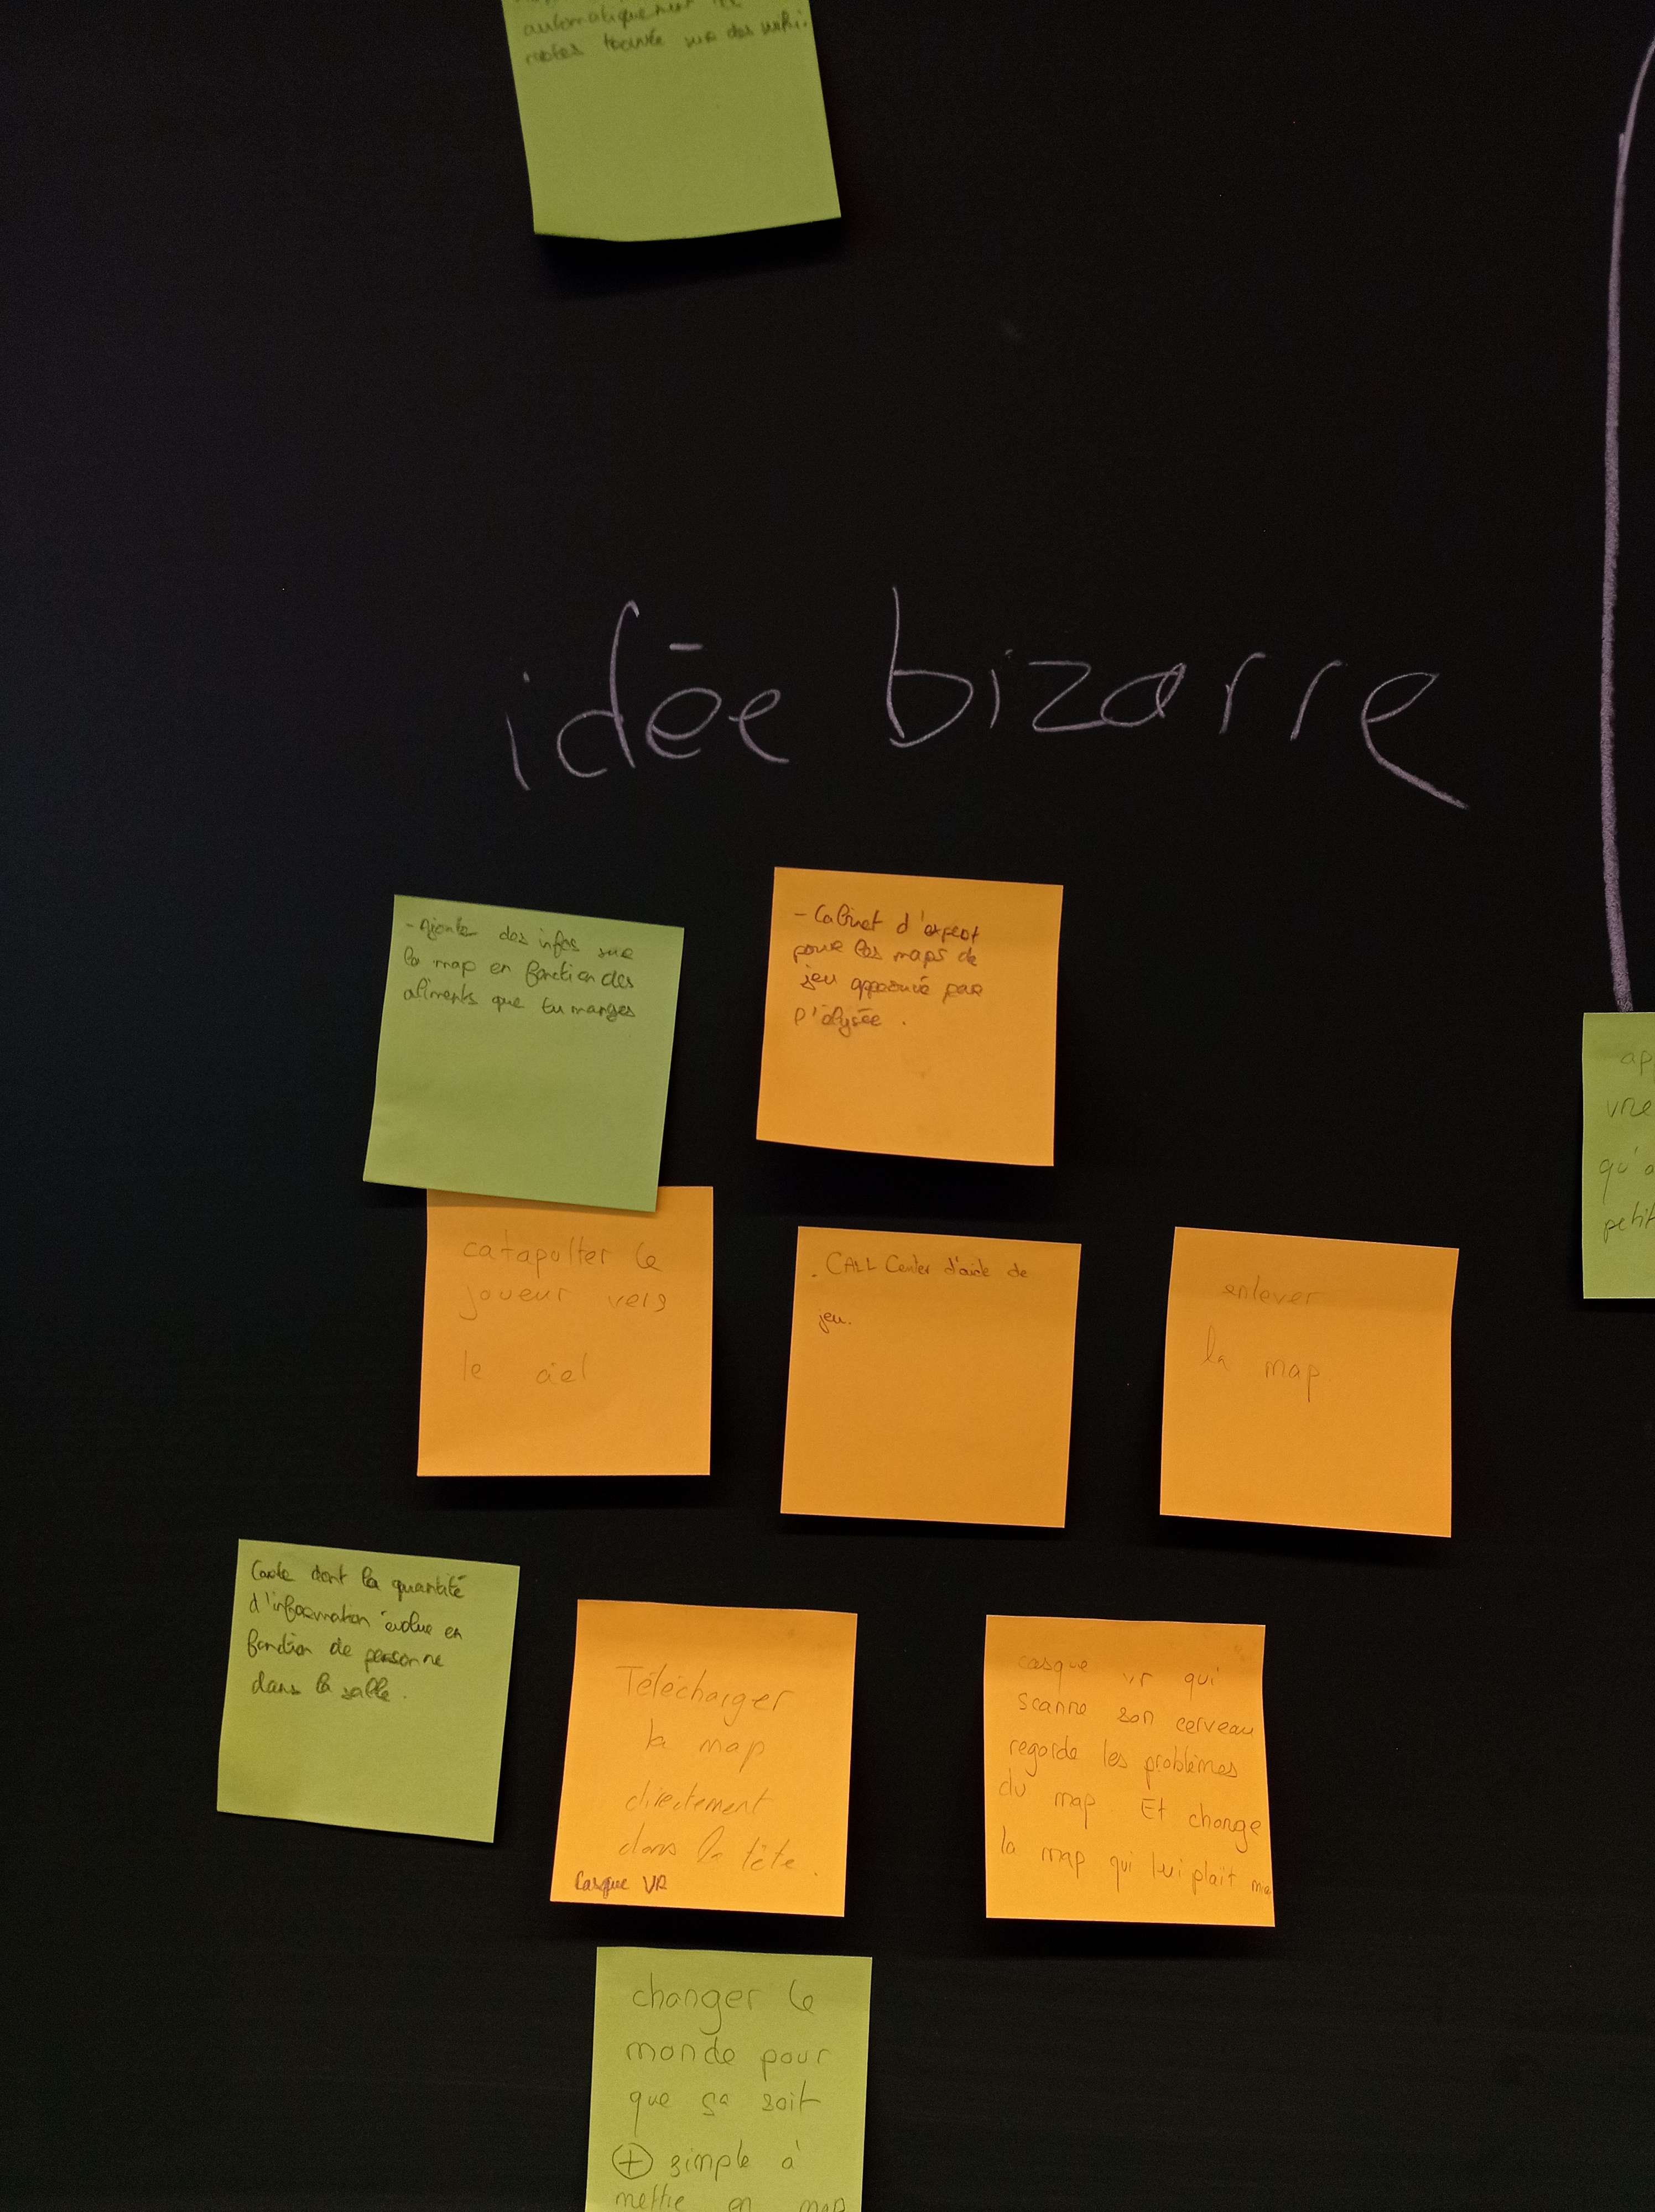 automatiquement
notes trouvée sur des wiki.
idée bizarre
- Ajoute des infos sur
la map en fonction des
aliments que tu manges
- Cabinet d'expert
pour les maps de
jeu approuvé par
l'élysée.
catapulter le
joueur vers
le ciel
. CALL Center d'aide de
jeu.
enlever
la map
ap
vre
qu'a
petit
Carte dont la quantité
d'information évolue en
fonction de personne
dans la salle.
Télécharger
la map
directement
dans la tête.
Casque VR
casque vr qui
scanne son cerveau
regarde les problèmes
du map Et change
la map qui lui plaît
changer le
monde pour
que ça soit
+ simple à
mettre en map